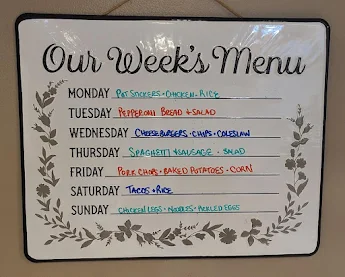 Our Week's Menu
MONDAY POT STICKERS • CHICKEN • RICE
TUESDAY PEPPERONI BREAD + SALAD
WEDNESDAY CHEESEBURGERS • CHIPS • COLESLAW
THURSDAY SPAGHETTI + SAUSAGE • SALAD
FRIDAY PORK CHOPS • BAKED POTATOES • CORN
SATURDAY TACOS • RICE
SUNDAY CHICKEN LEGS • NOODLES • PICKLED EGGS